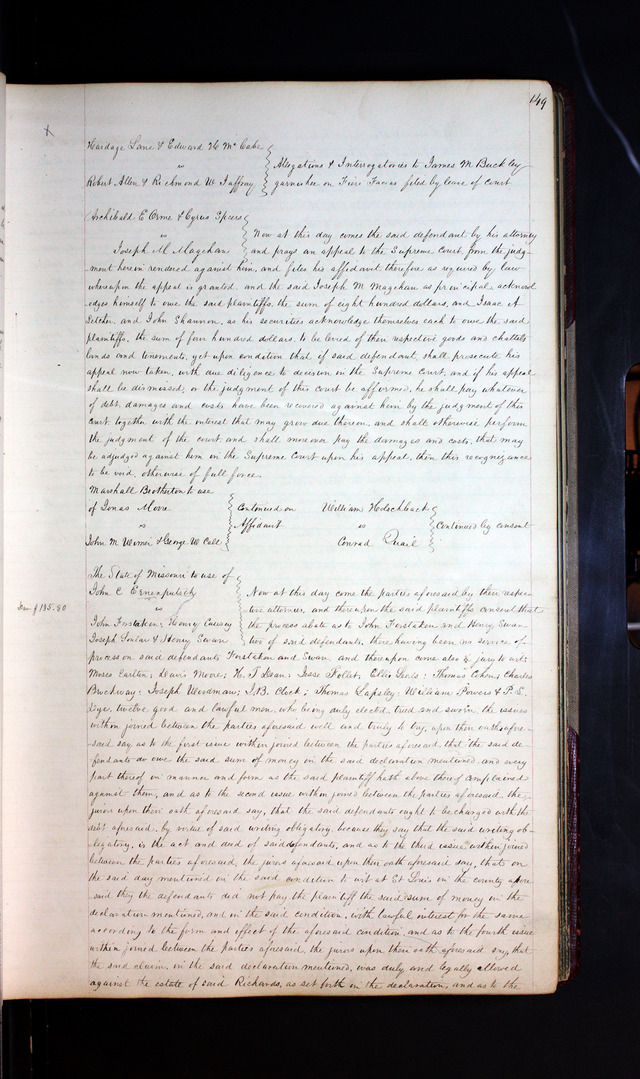 149
Hardage Lane & Edward H Mc Cabe
vs
Robert Allen & Richmond W Jaffray
Allegations & Interrogatories to James M Buckley
garnishee on Fieri Facias filed by leave of court
Archibald E Orme & Cyrus Spiers
vs
Joseph M. Magehan
Now at this day comes the said defendant by his attorney
and prays an appeal to the Supreme Court from the judg-
ment herein rendered against him, and files his affidavit therefore as required by law
whereupon the appeal is granted, and the said Joseph M Magehan as principal acknowl
edges himself to owe the said plaintiffs, the sum of eight hundred dollars, and Isaac A
Letcher and John Shannon, as his securities acknowledge themselves each to owe the said
plaintiffs, the sum of four hundred dollars, to be levied of their respective goods and chattels
lands and tenements, yet upon condition that if said defendant, shall prosecute his
appeal now taken, with due diligence to decision in the Supreme Court, and if his appeal
shall be dismissed, or the judgment of this court be affirmed, he shall pay whatever
of debt, damages and costs have been recovered against him by the judgment of this
court together with the interest that may grow due thereon, and shall otherwise perform
the judgment of the court and shall moreover pay the damages and costs, that may
be adjudged against him in the Supreme Court upon his appeal, then this recognizance
to be void, otherwise of full force.
Marshall Brotherton to use
of Jonas Moore
vs
John M Wimer & George W Call
Continued on
Affidavit
William Holschback
vs
Conrad Quail
Continued by consent
The State of Missouri to use of
John C
vs
John Forstaken, Henry
Joseph & Henry Swan
Now at this day come the parties aforesaid by their respec
tive attornies, and thereupon the said plaintiffs consent that
the process abate as to John Forstaken and Henry Swan
two of said defendants, there having been no service of
process on said defendants Forstaken and Swan, and thereupon come also a jury to wit:
Moses Carlton; Davis Moore; H. T. ; Jesse Follet; Ellis Leeds; Thomas Cohen; Charles
Buckway; Joseph Woodman; I. B. Clock; Thomas Lapsley; William Powers & P. L.
twelve good and lawful men, who being duly elected, tried and sworn the issues
within joined between the parties aforesaid well and truly to try, upon their oath afore-
said say, as to the first issue within joined between the parties aforesaid, that the said de-
fendants do owe the said sum of money in the said declaration mentioned and every
part thereof in manner and form as the said plaintiff hath above thereof complained
against them, and as to the second issue within joined between the parties aforesaid, the
jurors upon their oath aforesaid say, that the said defendants ought to be charged with the
debt aforesaid, by virtue of said writing obligatory, because they say that the said writing ob-
ligatory, is the act and deed of said defendants, and as to the third issue within joined
between the parties aforesaid, the jurors aforesaid upon their oath aforesaid say, that on
the said day mentioned in the said condition to wit at St Louis in the county afore
said they the defendants did not pay the plaintiff the said sum of money in the
declaration mentioned, and in the said condition, with lawful interest for the same
according to the form and effect of the aforesaid condition, and as to the fourth issue
within joined between the parties aforesaid, the jurors upon their oath aforesaid say, that
the said claim, in the said declaration mentioned, was duly and legally allowed
against the estate of said Richards, as set forth in the declaration, and as to the
$135.80